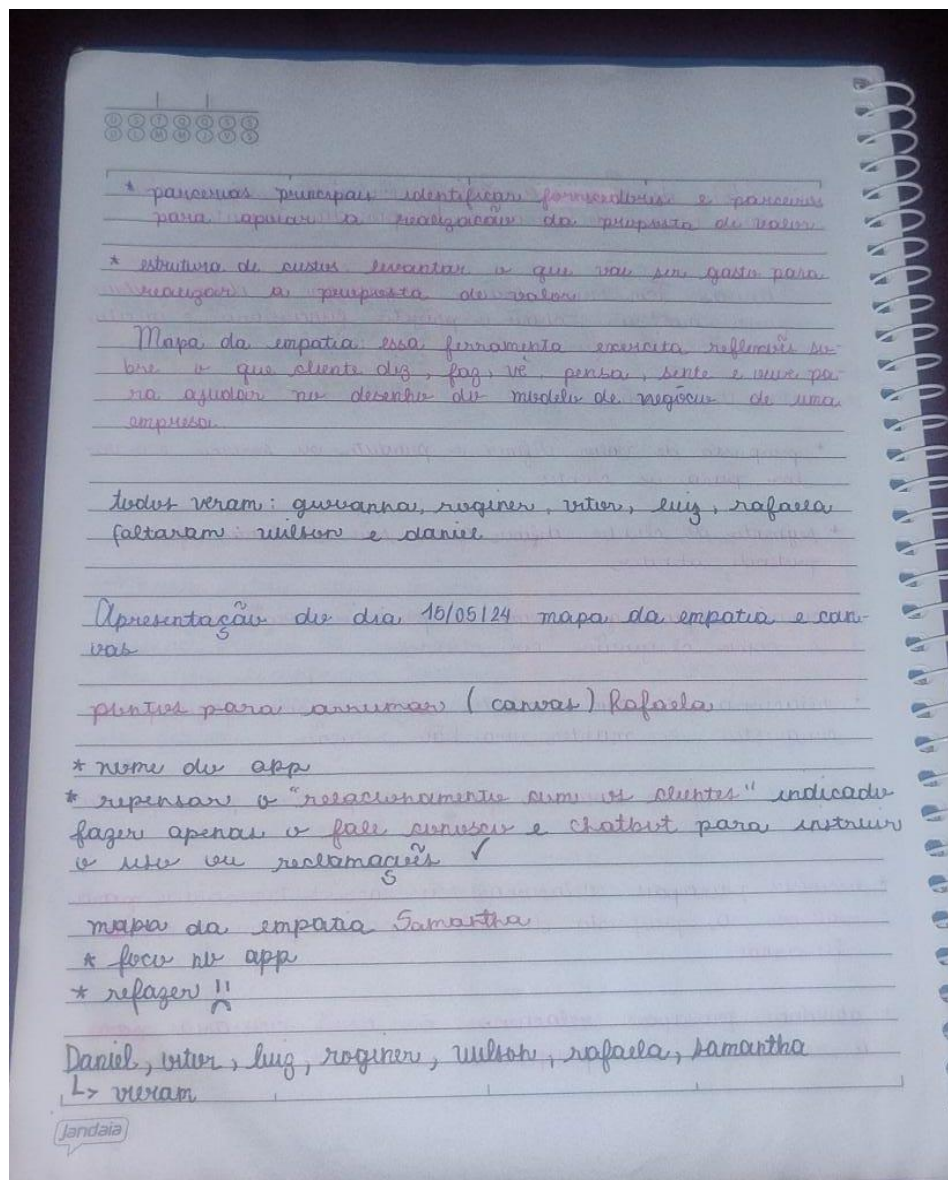 D S T Q Q S S
D L M M J V S
* parcerias principais identificar fornecedores e parceiros
para apoiar a realização da proposta de valor
* estrutura de custos levantar o que vai ser gasto para
realizar a proposta de valor
Mapa da empatia: essa ferramenta exercita reflexões so-
bre o que cliente diz, faz, vê, pensa, sente e ouve pa-
ra ajudar no desenho do modelo de negócio de uma
empresa.
todos veram: giovanna, roginer, vitor, luiz, rafaela
faltaram: wilson e daniel
Apresentação do dia 15/05/24 mapa da empatia e can-
vas
pontos para arrumar (canvas) Rafaela
* nome do app
* repensar o "relacionamento com os clientes" indicado
fazer apenas o fale conosco e chatbot para instruir
o uso ou reclamações ✓
mapa da empatia Samantha
* foco no app
* refazer !!
Daniel, vitor, luiz, roginer, wilson, rafaela, samantha
↳ vieram
Jandaia